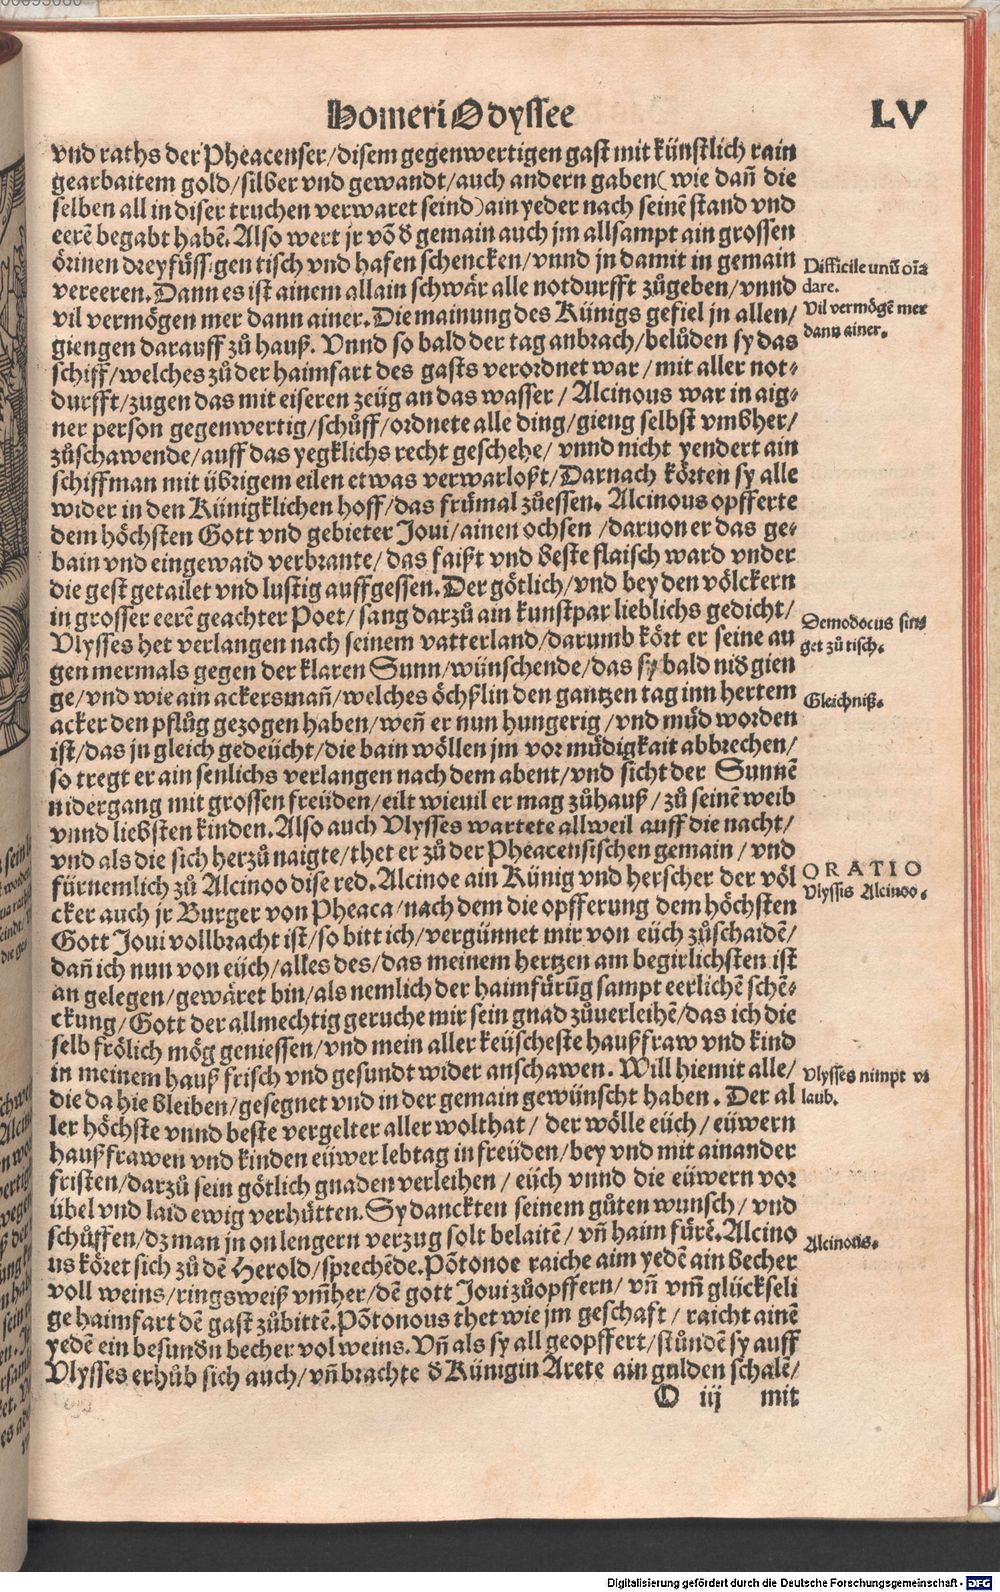 Homeri Odyssee LV
vnd raths der Pheacenser/disem gegenwertigen gast mit künstlich rain
gearbaitem gold/silber vnd gewandt/auch andern gaben (wie dañ die
selben all in diser truchen verwaret seind) ain yeder nach seinē stand vnd
eerē begabt habē. Also wert jr võ d gemain auch jm allsampt ain grossen
örinen dreyfüssigen tisch vnd hafen schencken/vnnd jn damit in gemain
vereeren. Dann es ist ainem allain schwär alle notdurfft zůgeben/vnnd
vil vermögen mer dann ainer. Die mainung des Künigs gefiel jn allen/
giengen darauff zů hauß. Vnnd so bald der tag anbrach/belůden sy das
schiff/welches zů der haimfart des gasts verordnet war/mit aller not-
durfft/zugen das mit eiseren zeüg an das wasser/Alcinous war in aig-
ner person gegenwertig/schůff/ordnete alle ding/gieng selbst vmbher/
zůschawende/auff das yegklichs recht geschehe/vnnd nicht yendert ain
schiffman mit übrigem eilen etwas verwarloßt/Darnach körten sy alle
wider in den Künigklichen hoff/das frümal zůessen. Alcinous opfferte
dem höchsten Gott vnd gebieter Joui/ainen ochsen/daruon er das ge-
bain vnd eingewaid verbrante/das faißt vnd beste flaisch ward vnder
die gest getailet vnd lustig auffgessen. Der götlich/vnd bey den völckern
in grosser eerē geachter Poet/sang darzů ain kunstpar lieblichs gedicht/
Vlysses het verlangen nach seinem vatterland/darumb kört er seine au
gen mermals gegen der klaren Sunn/wünschende/das sy bald nid gien
ge/vnd wie ain ackersmañ/welches öchßlin den gantzen tag inn hertem
acker den pflůg gezogen haben/weñ er nun hungerig/vnd müd worden
ist/das jn gleich gedeücht/die bain wöllen jm vor müdigkait abbrechen/
so tregt er ain senlichs verlangen nach dem abent/vnd sicht der Sunnē
nidergang mit grossen freüden/eilt wieuil er mag zůhauß/zů seinē weib
vnnd liebsten kinden. Also auch Vlysses wartete allweil auff die nacht/
vnd als die sich herzů naigte/thet er zů der Pheacensischen gemain/vnd
fürnemlich zů Alcinoo dise red. Alcinoe ain Künig vnd herscher der völ
cker auch jr Burger von Pheaca/nach dem die opfferung dem höchsten
Gott Joui vollbracht ist/so bitt ich/vergünnet mir von eüch zůschaidē/
dañ ich nun von eüch/alles des/das meinem hertzen am begirlichsten ist
an gelegen/gewäret bin/als nemlich der haimfürüg sampt eerlichē schē-
ckung/Gott der allmechtig geruche mir sein gnad zůuerleihē/das ich die
selb frölich mög geniessen/vnd mein aller keüscheste haußfraw vnd kind
in meinem hauß frisch vnd gesundt wider anschawen. Will hiemit alle/
die da hie bleiben/gesegnet vnd in der gemain gewünscht haben. Der al
ler höchste vnnd beste vergelter aller wolthat/der wölle eüch/eüwern
haußfrawen vnd kinden eüwer lebtag in freüden/bey vnd mit ainander
fristen/darzů sein götlich gnaden verleihen/eüch vnnd die eüwern vor
übel vnd laid ewig verhütten. Sy danckten seinem gůten wunsch/vnd
schůffen/dz man jn on lengern verzug solt belaitē/vñ haim fürē. Alcino
us köret sich zů dē Herold/sprechēde. Põtonoe raiche aim yedē ain becher
voll weins/ringsweiß vm̃her/dē gott Joui zůopffern/vñ vm̃ glückseli
ge haimfart dē gast zůbittē. Põtonous thet wie jm geschaft/raicht ainē
yedē ein besundn becher vol weins. Vñ als sy all geopffert/stůndē sy auff
Vlysses erhůb sich auch/vñ brachte d Künigin Arete ain gulden schalē/
O iij mit
Difficile unũ oĩa
dare.
Vil vermögē mer
dann ainer.
Demodocus sin
get zů tisch.
Gleichniß.
ORATIO
Vlyssis Alcinoo.
Vlysses nimpt vr
laub.
Alcinous.
Digitalisierung gefördert durch die Deutsche Forschungsgemeinschaft - DFG